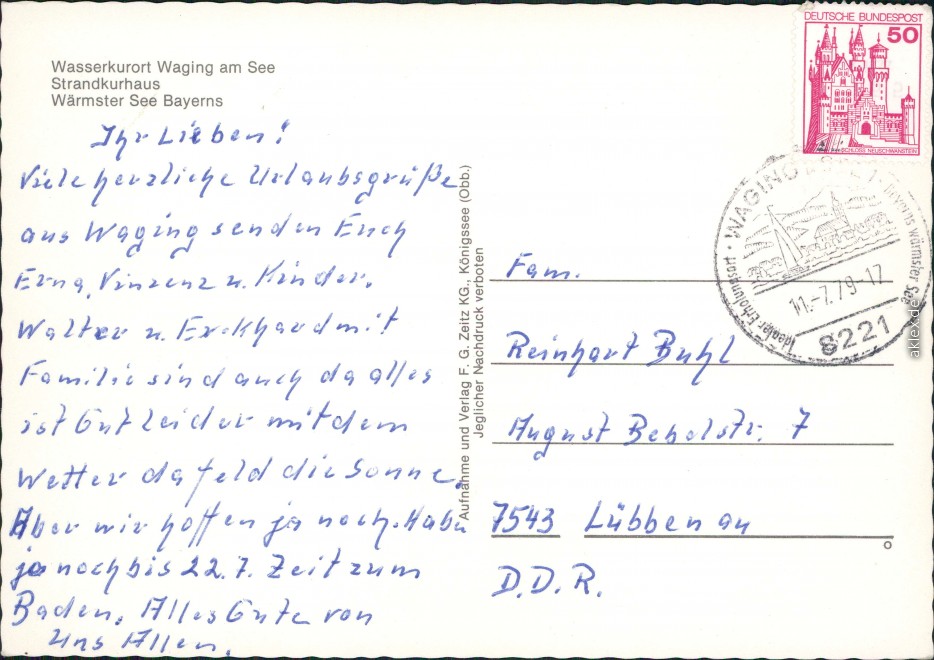 Wasserkurort Waging am See
Strandkurhaus
Wärmster See Bayerns
Ihr Lieben!
Viele herzliche Urlaubsgrüße
aus Waging senden Euch
Erna, Vinzenz u. Kinder.
Walter u. Eckhard mit
Familie sind auch da alles
ist Gut Leider mit dem
Wetter da feld die Sonne.
Aber wir hoffen ja noch. Habn
ja noch bis 22.7. Zeit zum
Baden. Alles Gute von
Uns Allen.
Aufnahme und Verlag F. G. Zeitz KG., Königssee (Obb.)
Jeglicher Nachdruck verboten
DEUTSCHE BUNDESPOST
50
SCHLOSS NEUSCHWANSTEIN
WAGING
Bayerns wärmster See
Idealer Erholungsort
11.-7.79-17
8221
Fam.
Reinhart Buhl
August Bebelstr. 7
7543 Lübbenau
D.D.R.
akpool.de